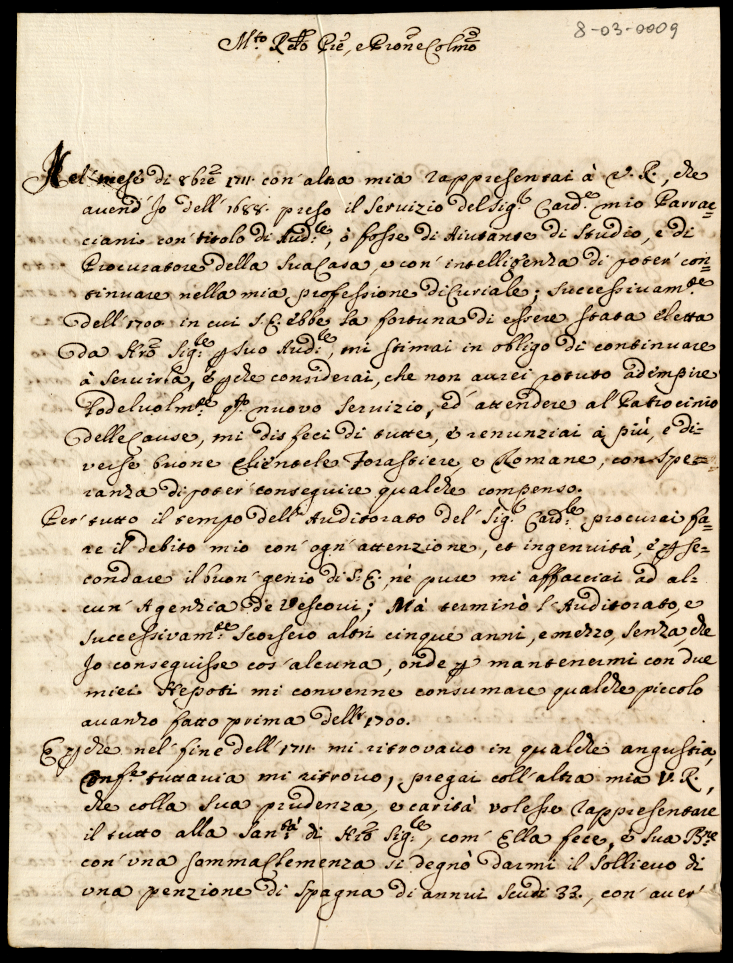 8-03-0009
M.to R.do Pre, e Prone Colmo
Nel mese di 8bre 1711 con altra mia rappresentai à V. R., che
avend' Io dell' 1688 preso il Servizio del Sig.r Card.le mio Parrac-
ciani con titolo di Aud.re, ò fosse di Aiutante di Studio, e di
Procuratore della Sua Casa, e con intelligenza di poter con-
tinuare nella mia professione di Curiale; successivam.te
dell' 1700 in cui S. E. ebbe la fortuna di essere stata eletta
da Nro Sig.re p suo Aud.re, mi stimai in obligo di continuare
à servirla, e pche considerai, che non aurei potuto adempire
lodevolm.te q.to nuovo servizio, ed' attendere al Patrocinio
delle Cause, mi disfeci di tutte, e renunziai à più, e di-
verse buone Clientele Forastiere, e Romane, con spe-
ranza di poter conseguire qualche compenso.
Per tutto il tempo dell' Auditorato del Sig.r Card.le procurai fa-
re il debito mio con ogn' attenzione, et ingenuità, e p se-
condare il buon genio di S. E. nè pure mi affacciai ad al-
cun' Agenzia de Vescovi; Mà terminò l'Auditorato, e
successivam.te scorsero altri cinque anni, e mezzo, senza che
Io conseguisse cos' alcuna, onde p mantenermi con due
miei Nepoti mi convenne consumare qualche piccolo
avanzo fatto prima dell' 1700.
E pche nel fine dell' 1711 mi ritrovavo in qualche angustia,
tuttavia mi ritrovo, pregai coll' altra mia V. R.,
che colla sua prudenza, e carità volesse rappresentare
il tutto alla San.tà di Nro Sig.re, com' Ella fece, e Sua B.ne
con una somma Clemenza si degnò darmi il sollievo di
una penzione di Spagna di annui scudi 33, con aver'